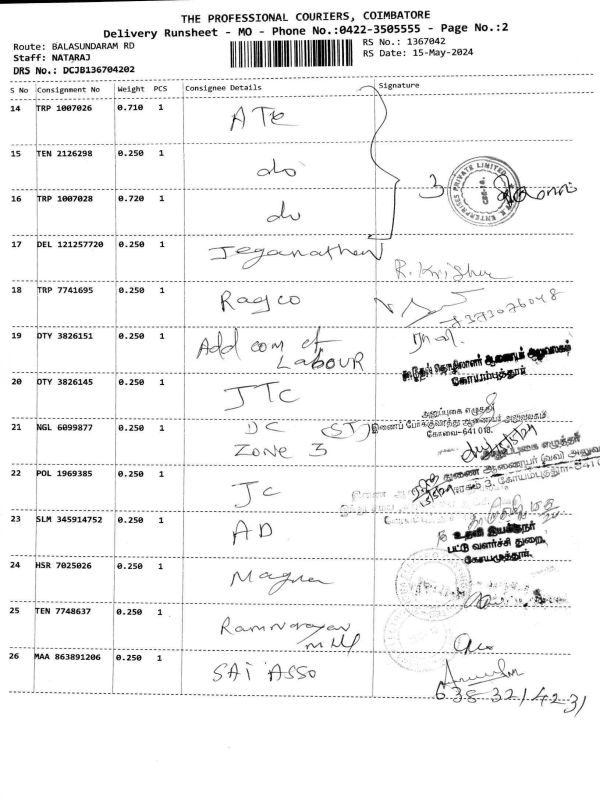 THE PROFESSIONAL COURIERS, COIMBATORE
Delivery Runsheet - MO - Phone No.:0422-3505555 - Page No.:2
Route: BALASUNDARAM RD
RS No.: 1367042
Staff: NATARAJ
RS Date: 15-May-2024
DRS No.: DCJB136704202
S No Consignment No Weight PCS Consignee Details Signature
14 TRP 1007026 0.710 1 ATE
15 TEN 2126298 0.250 1 do
3
PRIVATE LIMITED
ENTERPRISES
16 TRP 1007028 0.720 1 do
17 DEL 121257720 0.250 1 Jeganathan
R. Krishna
18 TRP 7741695 0.250 1 Ragco
7373076048
19 OTY 3826151 0.250 1 Add com of
LABOUR
கூடுதல் தொழிலாளர் ஆணையர் அலுவலகம்
கோயம்புத்தூர்
20 OTY 3826145 0.250 1 JTC
அனுப்புகை எழுத்தர்
இணைப் போக்குவரத்து ஆணையர் அலுவலகம்
கோவை-641 018.
21 NGL 6099877 0.250 1 DC (ST)
ZONE 3
அனுப்புகை எழுத்தர்
துணை ஆணையர்
22 POL 1969385 0.250 1 JC
15/5/24
23 SLM 345914752 0.250 1 AD
உதவி இயக்குநர்
பட்டு வளர்ச்சி துறை,
கோயமுத்தூர்.
24 HSR 7025026 0.250 1 Magna
25 TEN 7748637 0.250 1 Ramnarayan
Mill
26 MAA 863891206 0.250 1 SAI ASSO
6383214231